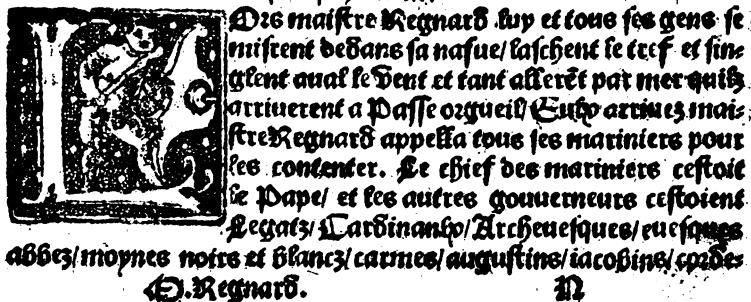 LOrs maistre Regnard luy et tous ses gens se
misrent dedans sa nafue/laschent le tref et sin-
glent aual le vent et tant allerēt par mer quilz
arriuerent a Passe orgueil/ Eulx arriuez mai-
stre Regnard appella tous ses mariniers pour
les contenter. Le chief des mariniers cestoit
le Pape/ et les autres gouuerneurs cestoient
Legatz/ Cardinaulx/ Archeuesques/ euesques
abbez/moynes noirs et blancz/ carmes/ augustins/ iacobins/ corde-
M.Regnard. N